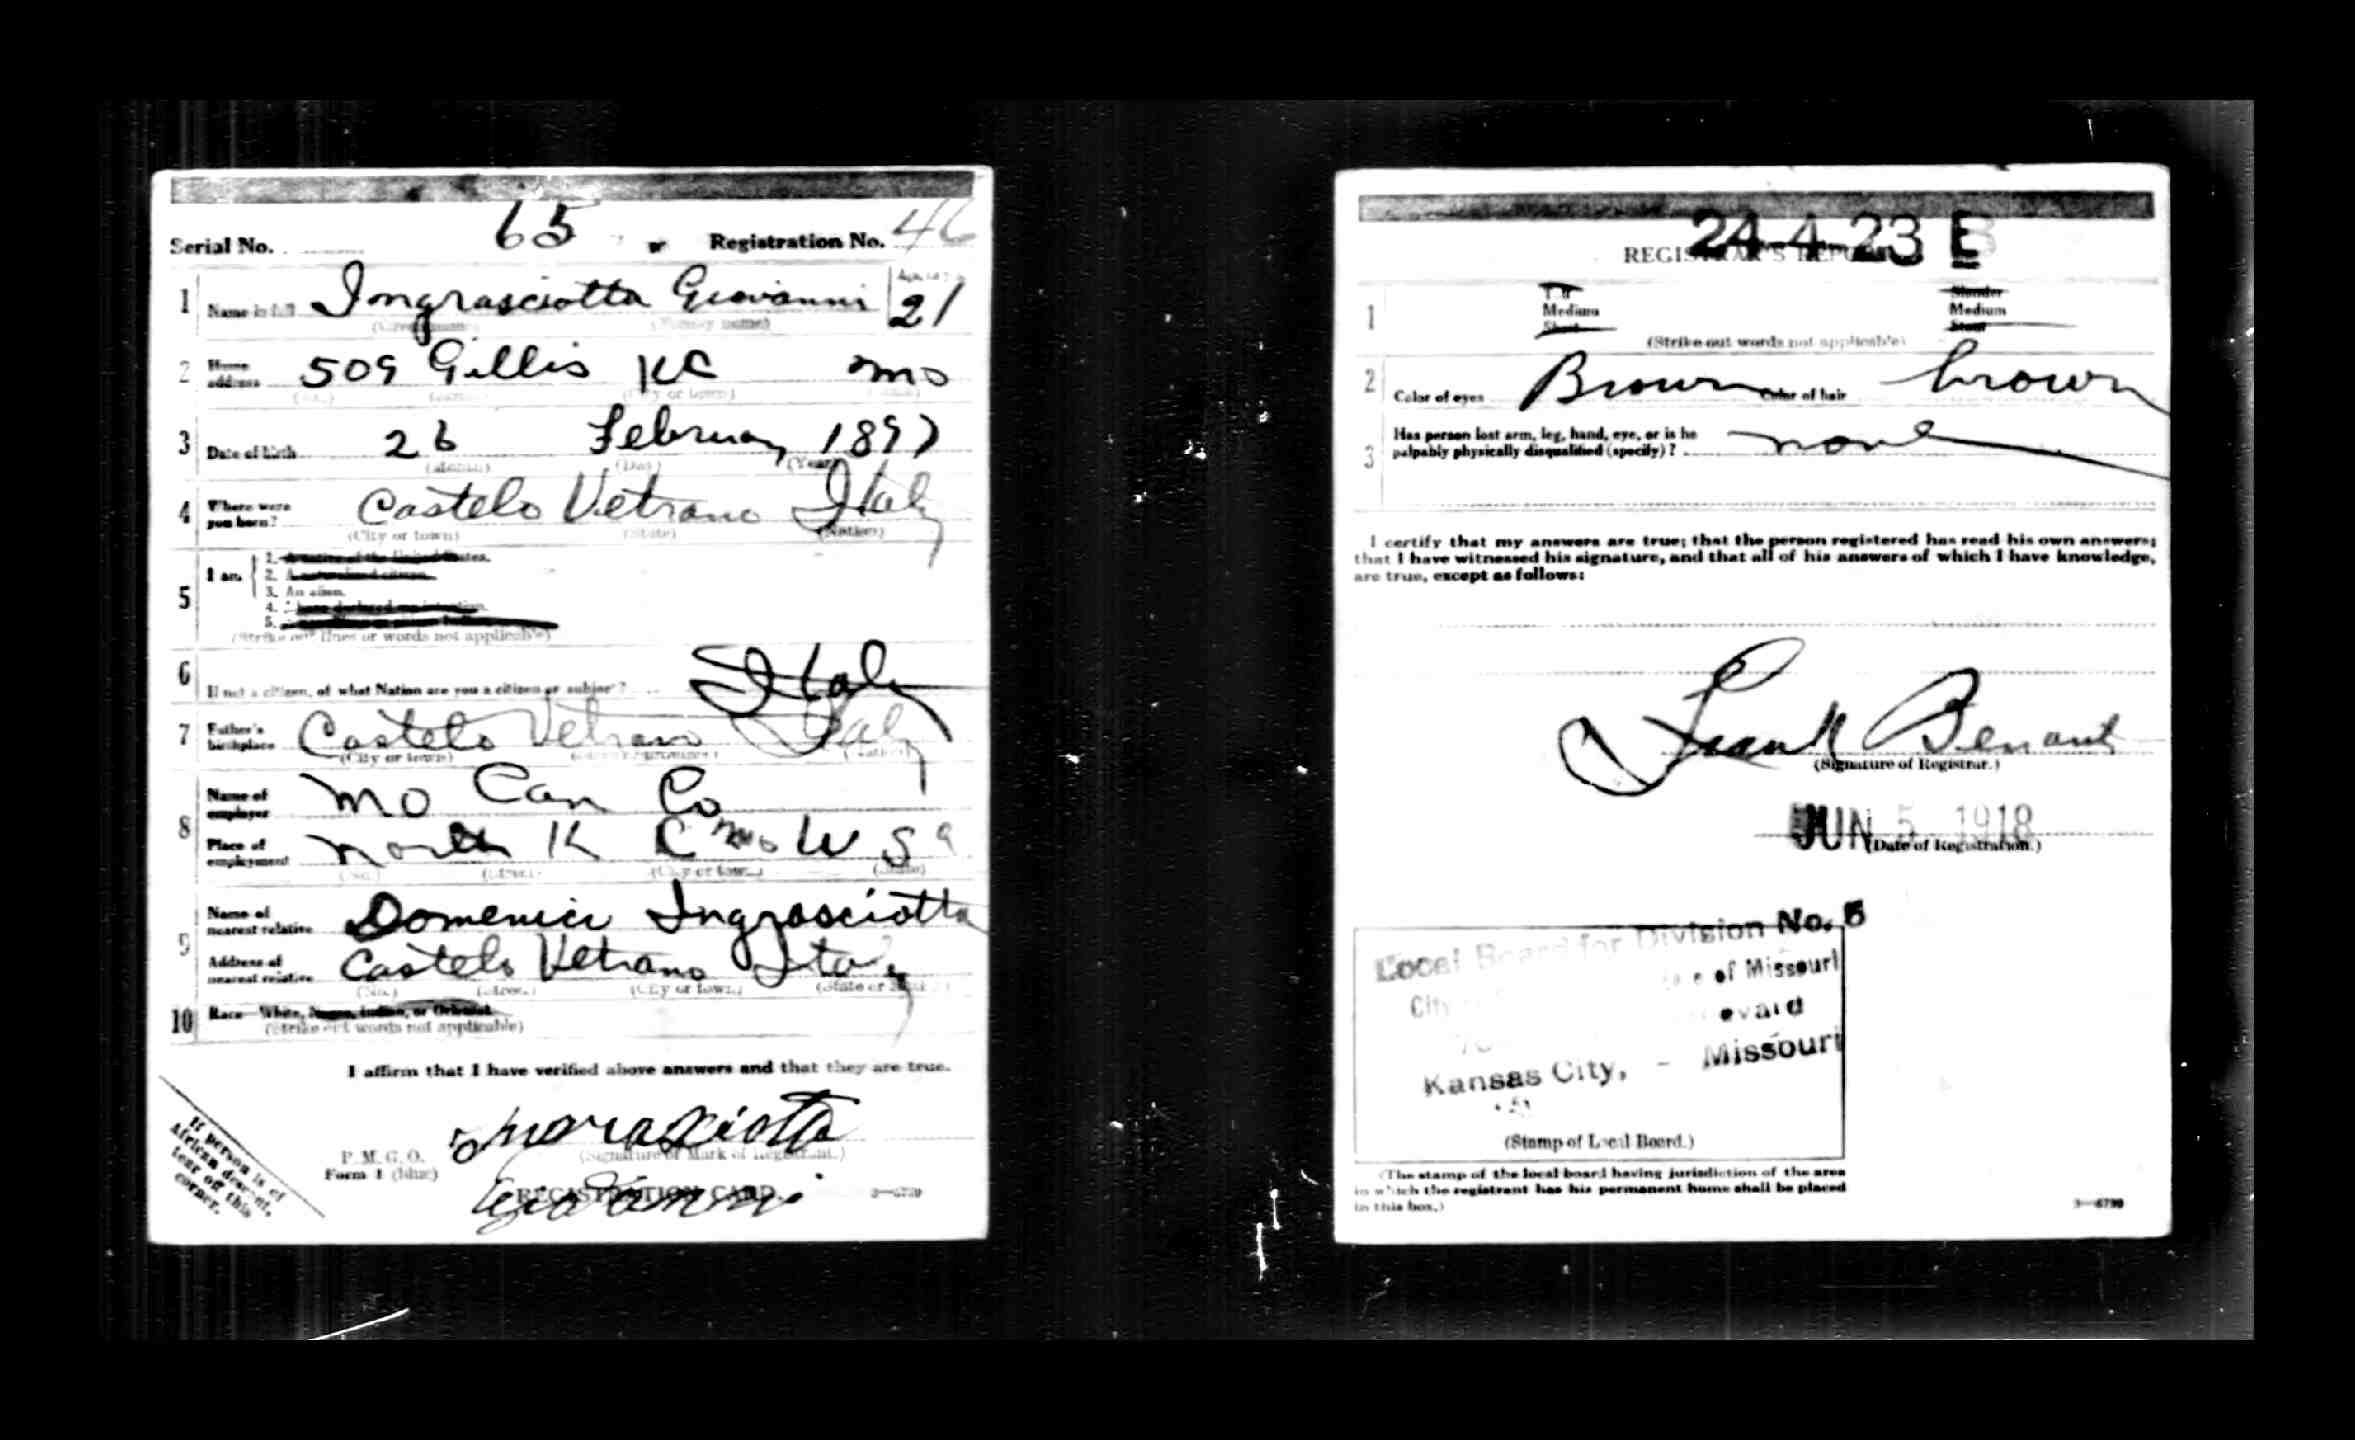 Serial No. 65 Registration No. 46
1 Name in full Ingrasciotta Giovanni 21
(Given name) (Family name)
2 Home address 509 Gillis KC Mo
(No.) (City or town)
3 Date of birth 26 February 1897
(Month) (Day) (Year)
4 Where were you born? Castelo Vetrano Italy
(City or town) (State) (Nation)
5 I am 1. A native of the United States.
2. A naturalized citizen.
3. An alien.
4. I have declared my intention
5.
(Strike out lines or words not applicable)
6 If not a citizen, of what Nation are you a citizen or subject? Italy
7 Father's birthplace Castelo Vetrano Italy
(City or town) (Nation)
8 Name of employer Mo Can Co
Place of employment North K C Mo
(No.) (Street) (City or town) (State)
9 Name of nearest relative Domenici Ingrasciotta
Address of nearest relative Castelo Vetrano Italy
(No.) (Street) (City or town) (State or
10 Race—White, Negro, Indian, or Oriental
(Strike out words not applicable)
I affirm that I have verified above answers and that they are true.
Ingrasciotta
P. M. G. O. (Signature or Mark of Registrant.)
Form 1 (blue)
Giovanni
REGISTRATION CARD 3—6739
If person is of
African descent,
tear off this
corner.
24-4-23 E
REGISTRAR'S REPORT
1 Tall Slender
Medium Medium
Short Stout
(Strike out words not applicable)
2 Color of eyes Brown Color of hair brown
3 Has person lost arm, leg, hand, eye, or is he
palpably physically disqualified (specify)? none
I certify that my answers are true; that the person registered has read his own answers;
that I have witnessed his signature, and that all of his answers of which I have knowledge,
are true, except as follows:
Frank Benanti
(Signature of Registrar.)
JUN 5 1918
(Date of Registration.)
Local Board for Division No. 5
City of Missouri
Kansas City, - Missouri
(Stamp of Local Board.)
(The stamp of the local board having jurisdiction of the area
in which the registrant has his permanent home shall be placed
in this box.)
3—6739